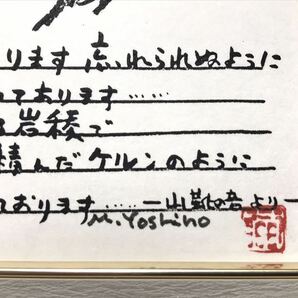 ります 忘れられぬように
ております……
岩稜で
積んだケルンのように
ております……ー山靴の音より
M. Yoshino